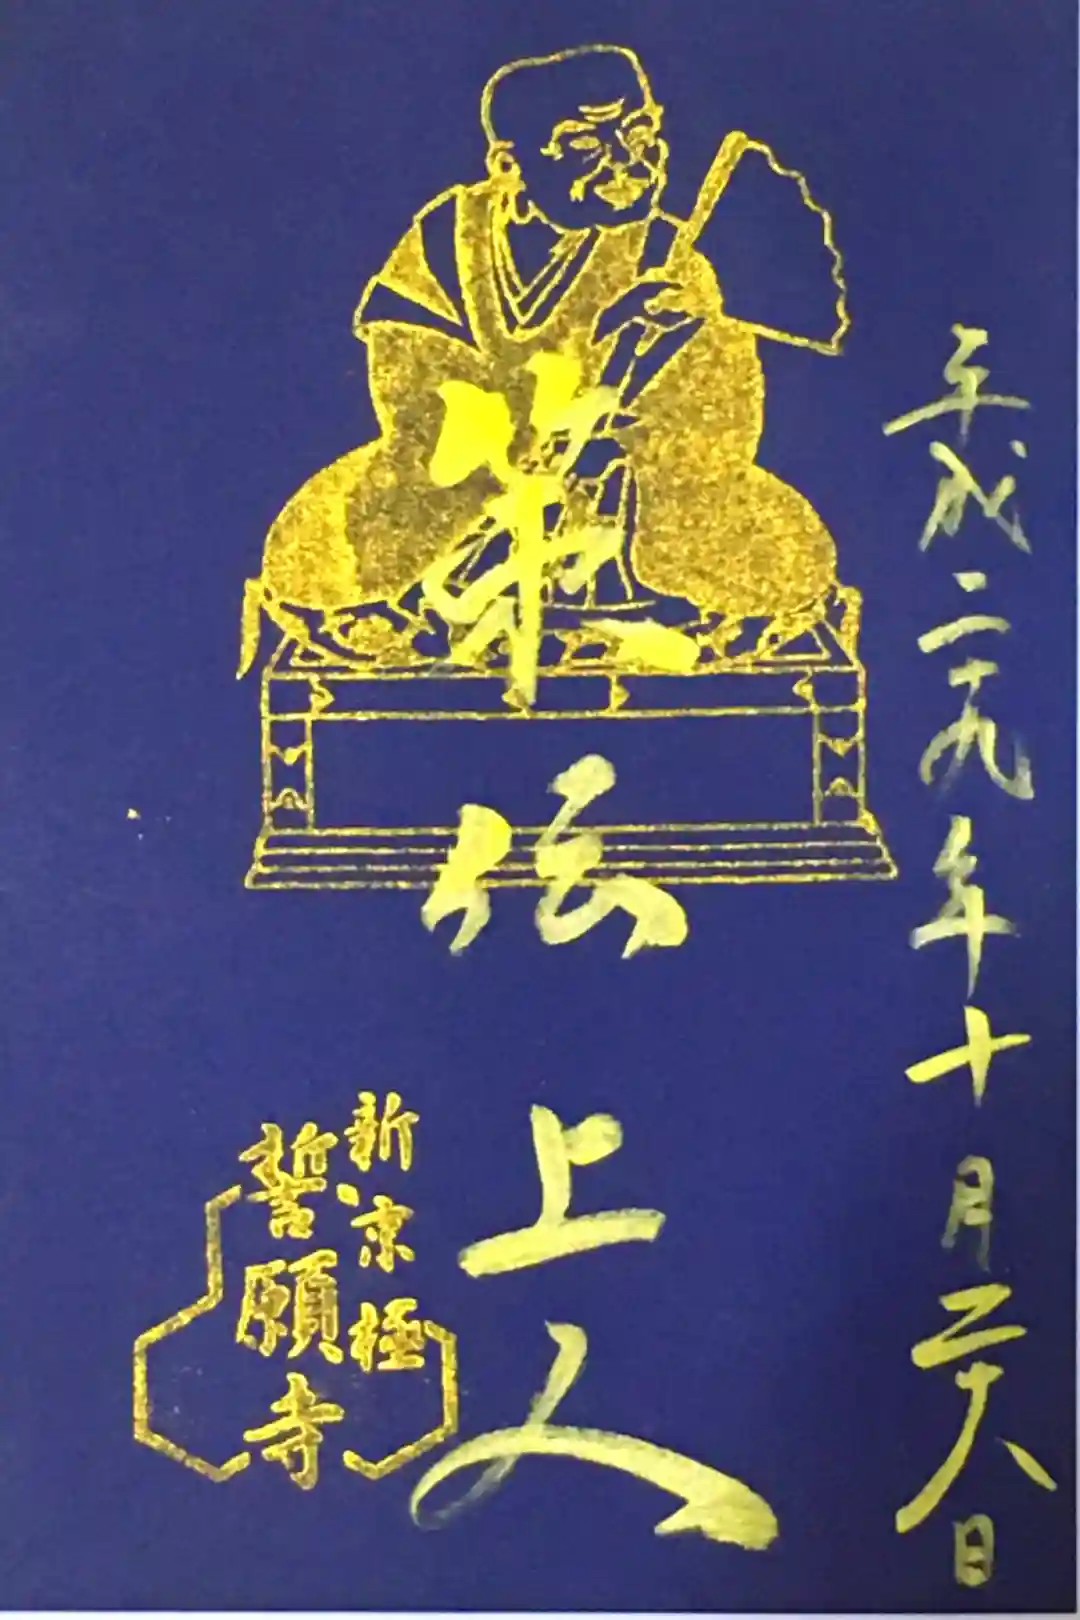 平成二十九年十月二十八日
策伝
上人
新京極
誓願寺